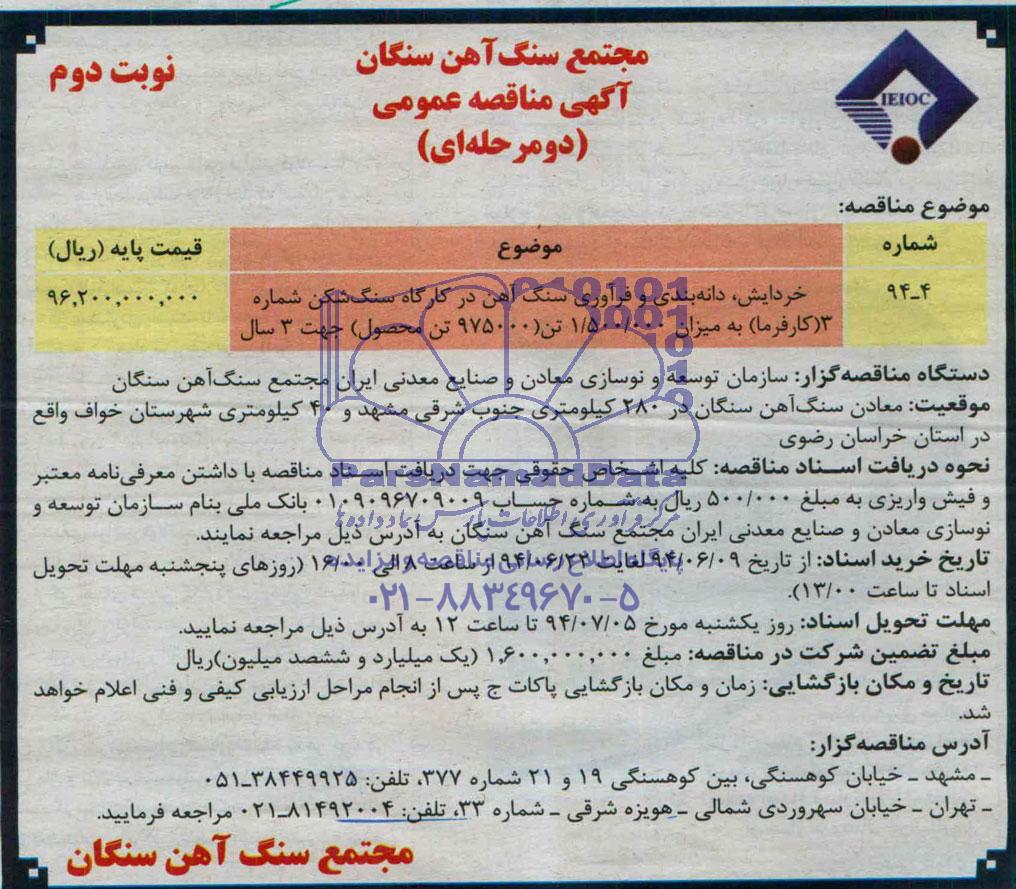 مجتمع سنگ‌آهن سنگان
نوبت دوم
آگهی مناقصه عمومی
(دومرحله‌ای)
IEIOC
موضوع مناقصه:
شماره موضوع قیمت پایه (ریال)
۹۴-۴ خردایش، دانه‌بندی و فرآوری سنگ آهن در کارگاه سنگ‌شکن شماره ۹۶,۲۰۰,۰۰۰,۰۰۰
۳(کارفرما) به میزان ۱/۵۰۰/۰۰۰ تن(۹۷۵۰۰۰ تن محصول) جهت ۳ سال
دستگاه مناقصه‌گزار: سازمان توسعه و نوسازی معادن و صنایع معدنی ایران مجتمع سنگ‌آهن سنگان
موقعیت: معادن سنگ‌آهن سنگان در ۲۸۰ کیلومتری جنوب شرقی مشهد و ۴۰ کیلومتری شهرستان خواف واقع
در استان خراسان رضوی
نحوه دریافت اسناد مناقصه: کلیه اشخاص حقوقی جهت دریافت اسناد مناقصه با داشتن معرفی‌نامه معتبر
و فیش واریزی به مبلغ ۵۰۰/۰۰۰ ریال به شماره حساب ۰۱۰۹۰۹۶۷۰۹۰۰۹ بانک ملی بنام سازمان توسعه و
نوسازی معادن و صنایع معدنی ایران مجتمع سنگ آهن سنگان به آدرس ذیل مراجعه نمایند.
تاریخ خرید اسناد: از تاریخ ۹۴/۰۶/۰۹ لغایت ۹۴/۰۶/۲۲ از ساعت ۸ الی ۱۶/۰۰ (روزهای پنجشنبه مهلت تحویل
اسناد تا ساعت ۱۳/۰۰).
مهلت تحویل اسناد: روز یکشنبه مورخ ۹۴/۰۷/۰۵ تا ساعت ۱۲ به آدرس ذیل مراجعه نمایید.
مبلغ تضمین شرکت در مناقصه: مبلغ ۱,۶۰۰,۰۰۰,۰۰۰ (یک میلیارد و ششصد میلیون)ریال
تاریخ و مکان بازگشایی: زمان و مکان بازگشایی پاکات ج پس از انجام مراحل ارزیابی کیفی و فنی اعلام خواهد
شد.
آدرس مناقصه‌گزار:
ـ مشهد ـ خیابان کوهسنگی، بین کوهسنگی ۱۹ و ۲۱ شماره ۳۷۷، تلفن: ۳۸۴۴۹۹۲۵-۰۵۱
ـ تهران ـ خیابان سهروردی شمالی ـ هویزه شرقی ـ شماره ۳۳، تلفن: ۸۱۴۹۲۰۰۴-۰۲۱ مراجعه فرمایید.
مجتمع سنگ آهن سنگان
ParsNamadData
مرکز فرآوری اطلاعات پارس نماد داده‌ها
پایگاه اطلاع رسانی مناقصه و مزایده
۰۲۱-۸۸۳۴۹۶۷۰-۵